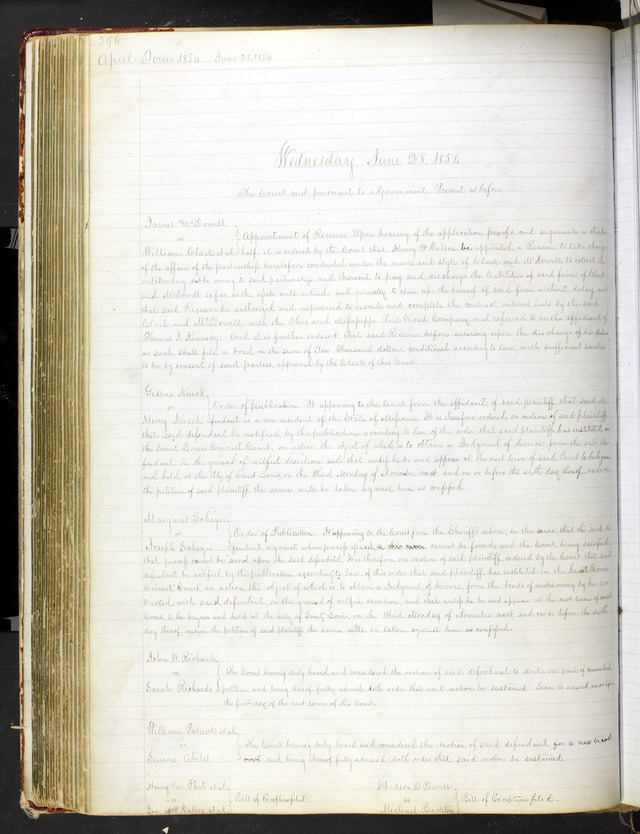 396
April Term 1854 June 28, 1854
Wednesday June 28, 1854
The Court met pursuant to adjournment Present as before
James McDowell
vs
Appointment of Receiver. Upon hearing of the application, proofs and arguments in this be
William Clark et al
half, it is ordered by the Court that Henry W. Watson be appointed a Receiver to take charge
of the affairs of the partnership heretofore conducted under the name and style of Clark and McDowell to collect the
outstanding debts owing to said partnership, and therewith to pay and discharge the liabilities of said firm of Clark
and McDowell so far as the assets will extend, and generally to close up the business of said firm without delay, and
that said Receiver be authorized and empowered to execute and complete the contract entered into by the said
Clark and McDowell with the Ohio and Mississippi Rail Road Company, and referred to in the affidavit of
Thomas I. Kennedy. And it is further ordered that said Receiver before entering upon the discharge of his duties
as such, shall file a bond in the sum of Ten Thousand dollars conditioned according to law, with sufficient sureties
to be by consent of said parties, approved by the Clerk of this Court.
vs
Order of publication. It appearing to the Court from the affidavit of said plaintiff, that said de
Henry
fendant is a non resident of the State of Missouri. It is therefore ordered, on motion of said plaintiff
that said defendant be notified by the publication according to law of this order that said plaintiff has instituted in
the Saint Louis Circuit Court, an action the object of which is to obtain a Judgment of divorce from the said de
fendant on the ground of wilful desertion and that unless he be and appear at the next term of said Court to be begun
and held at the City of Saint Louis, on the Third Monday of November next and on or before the sixth day thereof answer
the petition of said plaintiff the same will be taken against him as confessed.
Margaret
vs
Order of Publication. It appearing to the Court from the Sheriff's return, in this cause, that the said de
Joseph
fendant against whom process issued cannot be found, and the Court, being satisfied
that process cannot be served upon the said defendant. It is therefore on motion of said plaintiff ordered by the Court, that said
defendant be notified by the publication according to law of this order that said plaintiff has instituted in the Saint Louis
Circuit Court, an action, the object of which is to obtain a Judgment of divorce, from the bonds of matrimony by her con
tracted, with said defendant, on the ground of wilful desertion, and that unless he be and appear at the next term of said
Court, to be begun and held at the City of Saint Louis, on the Third Monday of November next and on or before the sixth
day thereof, answer the petition of said plaintiff the same will be taken against him as confessed.
John W. Richards
vs
The Court having duly heard and considered the motion of said defendant to strike out parts of amended
Sarah Richards
petition and being thereof fully advised doth order that said motion be sustained. Leave to amend on or before
the first day of the next term of this Court.
William Patrick et al
vs
The Court having duly heard and considered the motion of said defendant for a new trial
Simeon
and being thereof fully advised doth order that said motion be sustained
Henry Von Phul et al
vs
Bill of Exceptions filed
et al
vs
Bill of Exceptions filed.
Michael